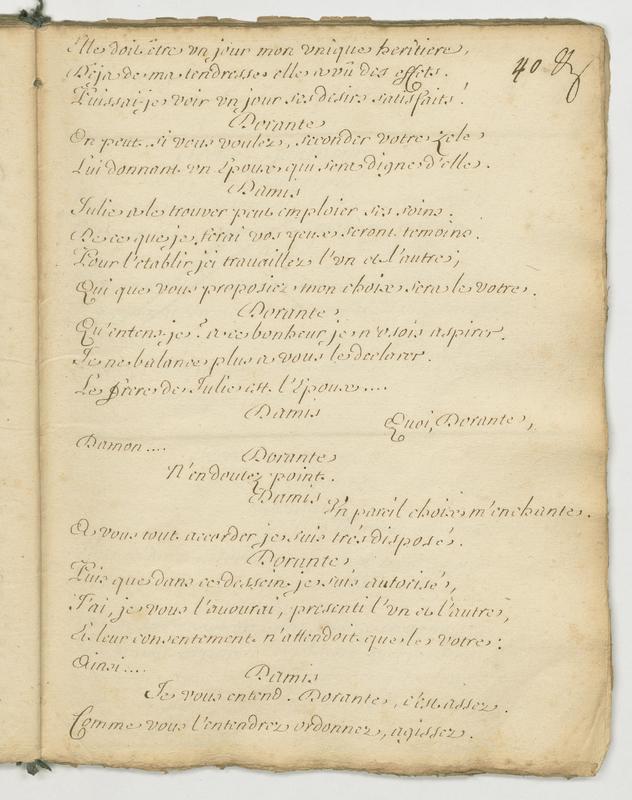 Elle doit être un jour mon unique heritiere,
40
Deja de ma tendresse elle a vû des effets.
Puissai-je voir un jour ses desirs satisfaits!
Dorante
On peut, si vous voulez, seconder votre zele
Lui donnant un Epoux qui sera digne d'elle.
Damis
Julie a le trouver peut emploier ses soins.
De ce que je ferai vos yeux seront temoins.
Pour l'etablir ici travaillez l'un et l'autre;
Qui que vous proposiez mon choix sera le votre.
Dorante
Qu'entens-je? a ce bonheur je n'osois aspirer.
Je ne balance plus a vous le declarer.
Le frere de Julie est l'Epoux....
Damis
Quoi, Dorante,
Damon....
Dorante
N'en doutez point.
Damis
Un pareil choix m'enchante.
A vous tout accorder je suis trés disposé.
Dorante
Puis que dans ce dessein je suis autorisé,
J'ai, je vous l'avourai, presenti l'un et l'autre,
Et leur consentement n'attendoit que le votre:
Ainsi....
Damis
Je vous entend. Dorante, c'est assez.
Comme vous l'entendrez ordonnez, agissez.